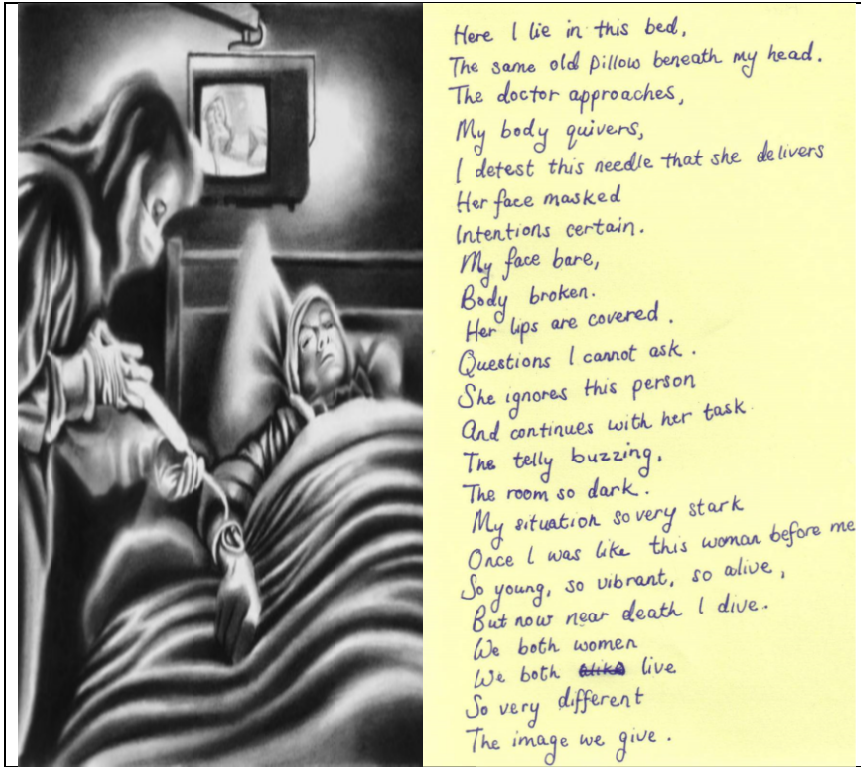 Here I lie in this bed,
The same old pillow beneath my head.
The doctor approaches,
My body quivers,
I detest this needle that she delivers
Her face masked
Intentions certain.
My face bare,
Body broken.
Her lips are covered.
Questions I cannot ask.
She ignores this person
And continues with her task.
The telly buzzing.
The room so dark.
My situation so very stark
Once I was like this woman before me
So young, so vibrant, so alive,
But now near death I dive.
We both women
We both live
So very different
The image we give.